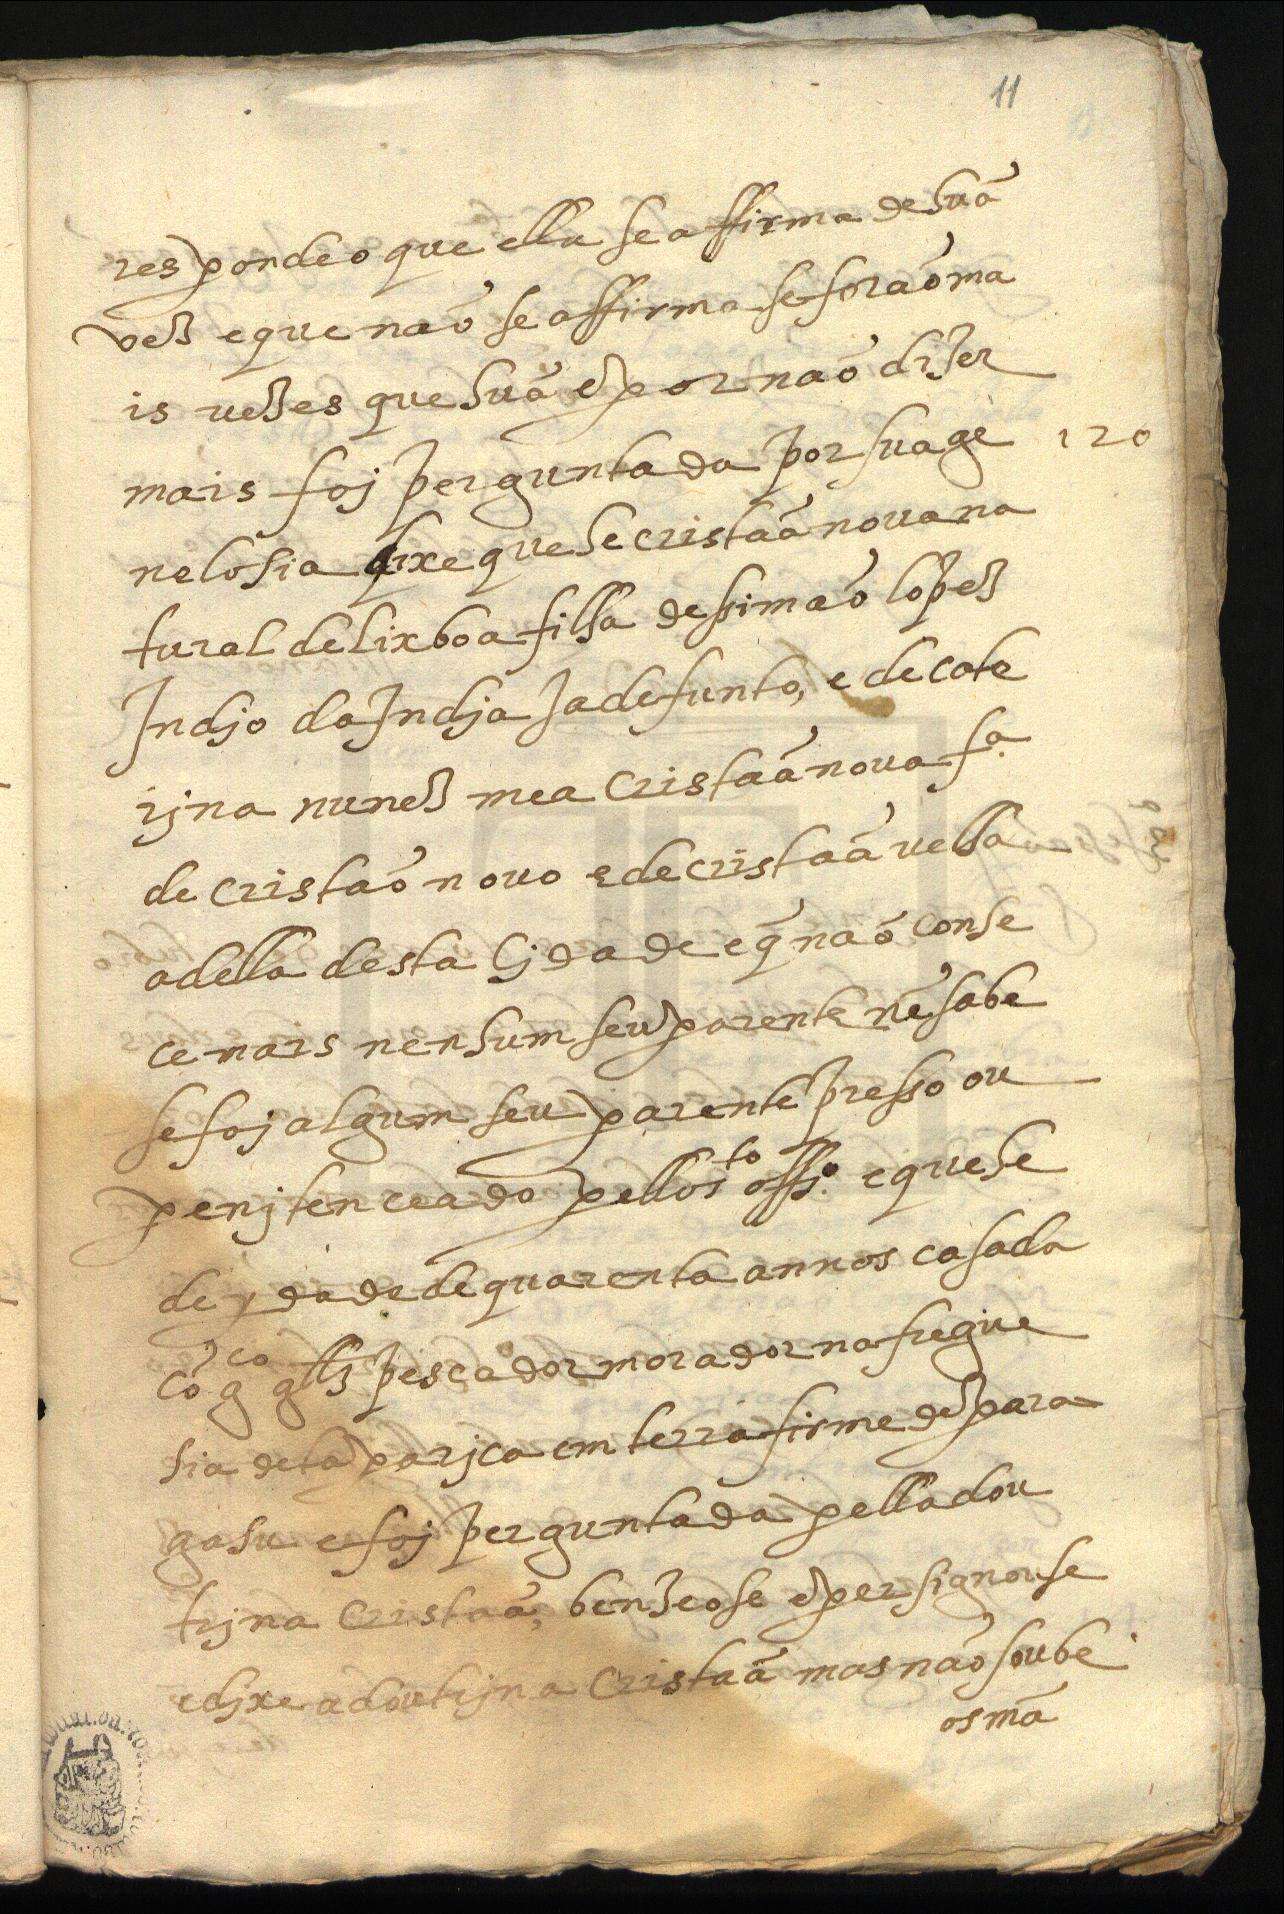 11
respondeo que ella se affirma de hũa
vez e que não se affirma se forão ma
is vezes que hũa e por não dizer
mais foj perguntada por sua ge 120
nelosia dixe que he cristaã noua na
tural de lixboa filha de simão lopez
Indjo da Indja Ja defunto, e de cate
rjna nunez mea cristaã noua fª.
de cristaõ nouo e de cristaã uelha
adella desta Cjdade e q̃ não conhe
ce mais nenhum seu parente nẽ sabe
se foj algum seu parente presso ou
penjtenceado pello sto offº. e que he
de ydade de quarenta annos casada
cõ gco glz pescador morador na fregue
sia de taparjca em terra firme de para
gasu e foj perguntada pella dou
trjna cristaã, benzeose e persignouse
e djxe a doutrjna cristaã mas não soube
os mã